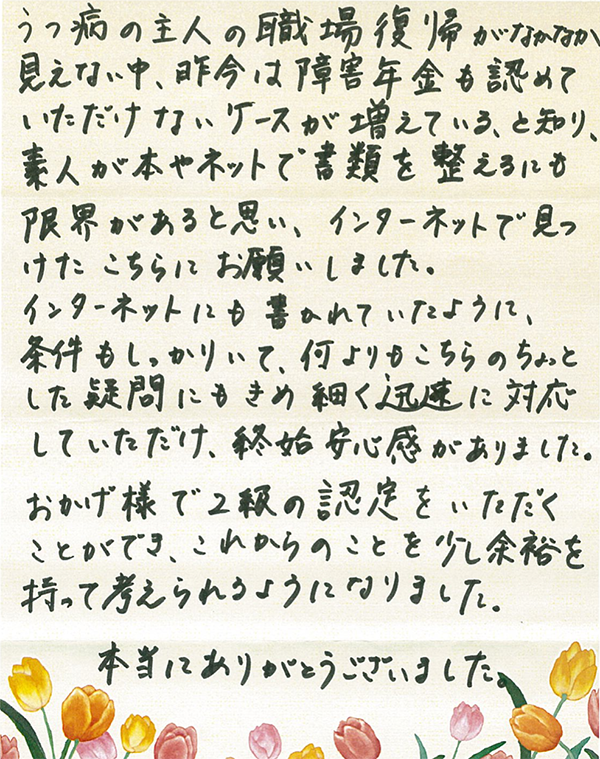 うつ病の主人の職場復帰がなかなか
見えない中、昨今は障害年金も認めて
いただけないケースが増えている、と知り、
素人が本やネットで書類を整えるにも
限界があると思い、インターネットで見つ
けたこちらにお願いしました。
インターネットにも書かれていたように、
条件もしっかりいて、何よりもこちらのちょっと
した疑問にもきめ細く迅速に対応
していただけ、終始安心感がありました。
おかげ様で2級の認定をいただく
ことができ、これからのことを少し余裕を
持って考えられるようになりました。
本当にありがとうございました。